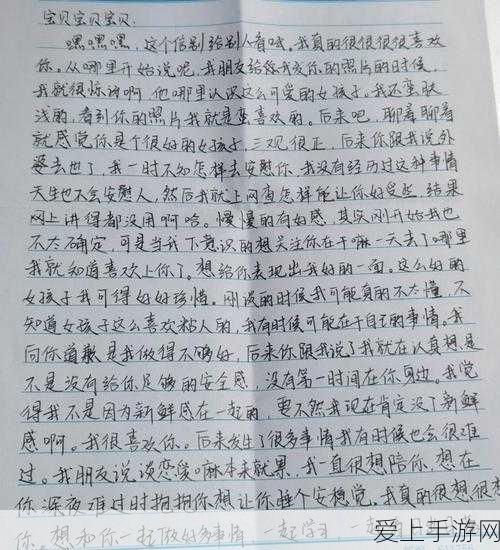 宝贝宝贝宝贝.
嘿嘿嘿，这个信别给别人看哦。我真的很很很很喜欢
你。从哪里开始说呢，我朋友给我发你的照片的时候，
我就很惊讶啊 他哪里认识这么可爱的女孩子。我还蛮肤
浅的，看到你的照片我就是蛮喜欢的。后来吧，聊着聊着
就感觉你是个很好的女孩子，三观很正，后来你跟我说外
婆去世了，我一时不知怎样去安慰你，我没有经历过这种事情
天生也不会安慰人，然后我就上网查怎样能让你好受些，结果
网上讲得都没用啊哈。慢慢的有好感，其实刚开始我也
不太确定，可是当我下意识的想关注你在干嘛一天去了哪里
我就知道喜欢上你了。想给你表现出我好的一面。这么好的
女孩子我可得好好珍惜。刚谈的时候我可能真的不太懂，不
知道女孩子这么喜欢粘人的，我有时候可能在干自己的事情。我
向你道歉是我做得不够好，后来你跟我说了我就在认真想是
不是没有给你足够的安全感，没有第一时间在你身边。我觉
得我不是因为新鲜感在一起的，要不然我现在肯定没了新鲜
感啊。我很喜欢你。后来发生了很多事情我有时候也会很难
过。我朋友说谈恋爱嘛本来就累，我一直很想陪你，想在
你深夜难过时抱抱你想让你睡个安稳觉。我真的很想很想
你。想和你一起做好多事情，一起学习，一起
爱上手游网